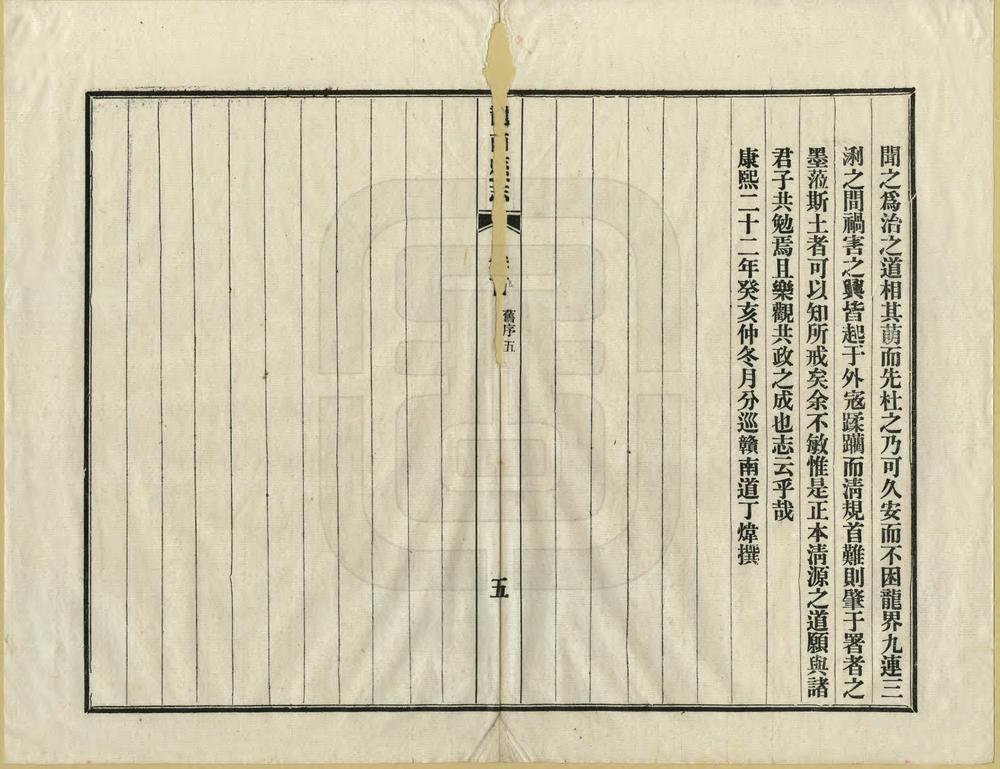 聞之爲治之道相其萌而先杜之乃可久安而不困龍界九連三
浰之間禍害之興皆起于外寇蹂躪而淸規首難則肇于署者之
墨蒞斯土者可以知所戒矣余不敏惟是正本淸源之道願與諸
君子共勉焉且樂觀共政之成也志云乎哉
康熙二十二年癸亥仲冬月分巡贛南道丁煒撰
南 志
舊序五
五